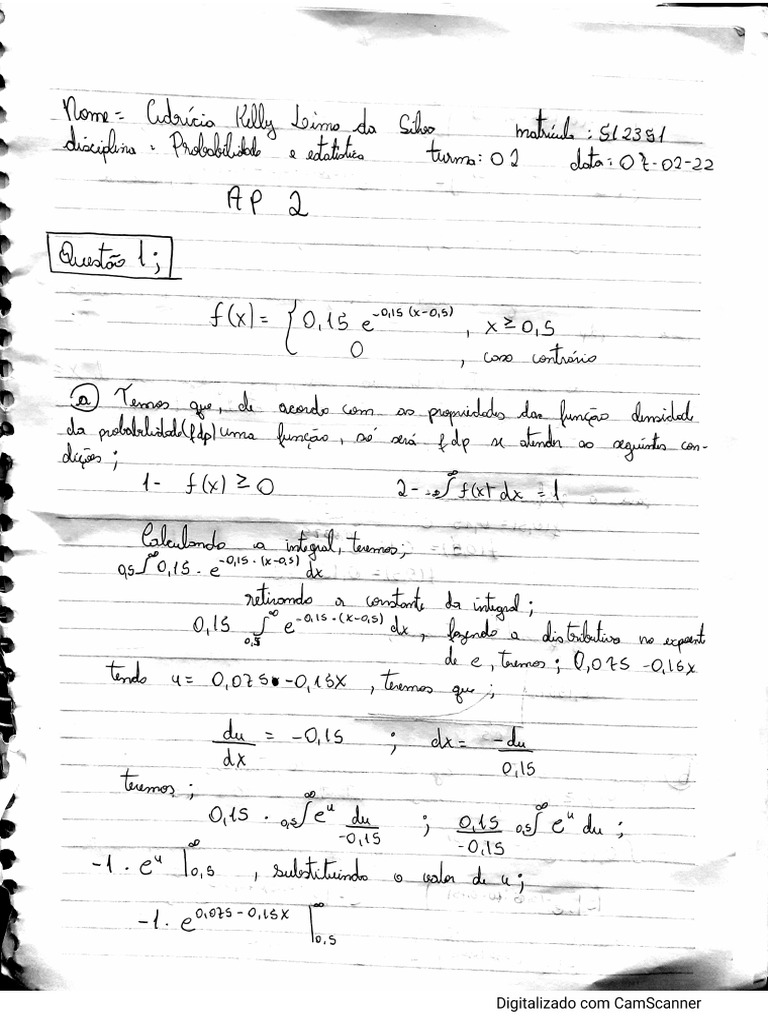 Nome = Cidrícia Kelly Lima da Silva matrícula : 512351
disciplina : Probabilidade e estatística turma: 02 data: 07-02-22
AP 2
Questão 1;
f(x) = { 0,15 e^-0,15 (x-0,5) , x ≥ 0,5
0 , caso contrário
a) Temos que, de acordo com as propriedades das função densidade
da probabilidade (fdp) uma função, só será fdp se atender as seguintes con-
dições;
1- f(x) ≥ 0 2- -∞∫^∞ f(x) dx = 1
Calculando a integral, teremos;
0,5∫^∞ 0,15 . e^-0,15 . (x-0,5) dx
retirando a constante da integral;
0,15 ∫_0,5^∞ e^-0,15 . (x-0,5) dx , fazendo a distributiva no expoent
de e, teremos; 0,075 -0,15x
tendo u = 0,075 -0,15x , teremos que;
du/dx = -0,15 ; dx = -du/0,15
teremos;
0,15 . 0,5∫^∞ e^u du/-0,15 ; 0,15/-0,15 0,5∫^∞ e^u du ;
-1 . e^u |_0,5^∞ , substituindo o valor de u;
-1 . e^0,075 - 0,15x |_0,5^∞
Digitalizado com CamScanner